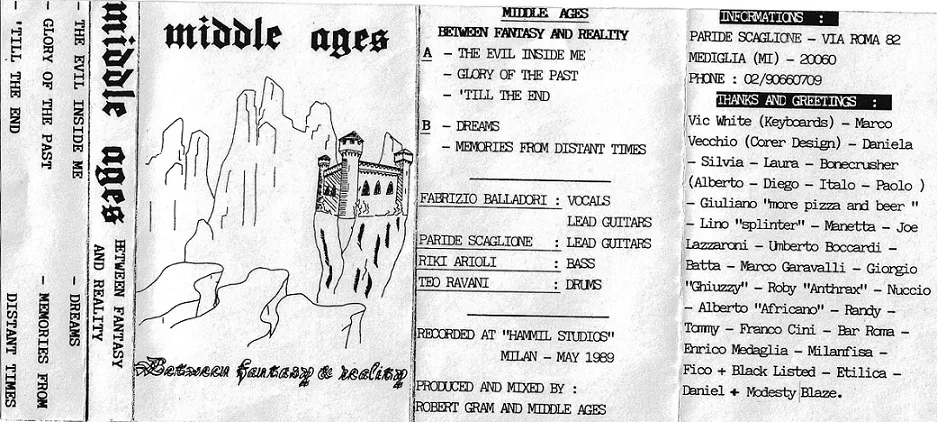 - THE EVIL INSIDE ME
- GLORY OF THE PAST
- 'TILL THE END
- DREAMS
- MEMORIES FROM
DISTANT TIMES
middle ages
BETWEEN FANTASY
AND REALITY
middle ages
Between fantasy & reality
MIDDLE AGES
BETWEEN FANTASY AND REALITY
A - THE EVIL INSIDE ME
- GLORY OF THE PAST
- 'TILL THE END
B - DREAMS
- MEMORIES FROM DISTANT TIMES
FABRIZIO BALLADORI : VOCALS
LEAD GUITARS
PARIDE SCAGLIONE : LEAD GUITARS
RIKI ARIOLI : BASS
TEO RAVANI : DRUMS
RECORDED AT "HAMMIL STUDIOS"
MILAN - MAY 1989
PRODUCED AND MIXED BY :
ROBERT GRAM AND MIDDLE AGES
INFORMATIONS :
PARIDE SCAGLIONE - VIA ROMA 82
MEDIGLIA (MI) - 20060
PHONE : 02/90660709
THANKS AND GREETINGS :
Vic White (Keyboards) - Marco
Vecchio (Corer Design) - Daniela
- Silvia - Laura - Bonecrusher
(Alberto - Diego - Italo - Paolo )
- Giuliano "more pizza and beer "
- Lino "splinter" - Manetta - Joe
Lazzaroni - Umberto Boccardi -
Batta - Marco Garavalli - Giorgio
"Ghiuzzy" - Roby "Anthrax" - Nuccio
- Alberto "Africano" - Randy -
Tommy - Franco Cini - Bar Roma -
Enrico Medaglia - Milanfisa -
Fico + Black Listed - Etilica -
Daniel + Modesty Blaze.